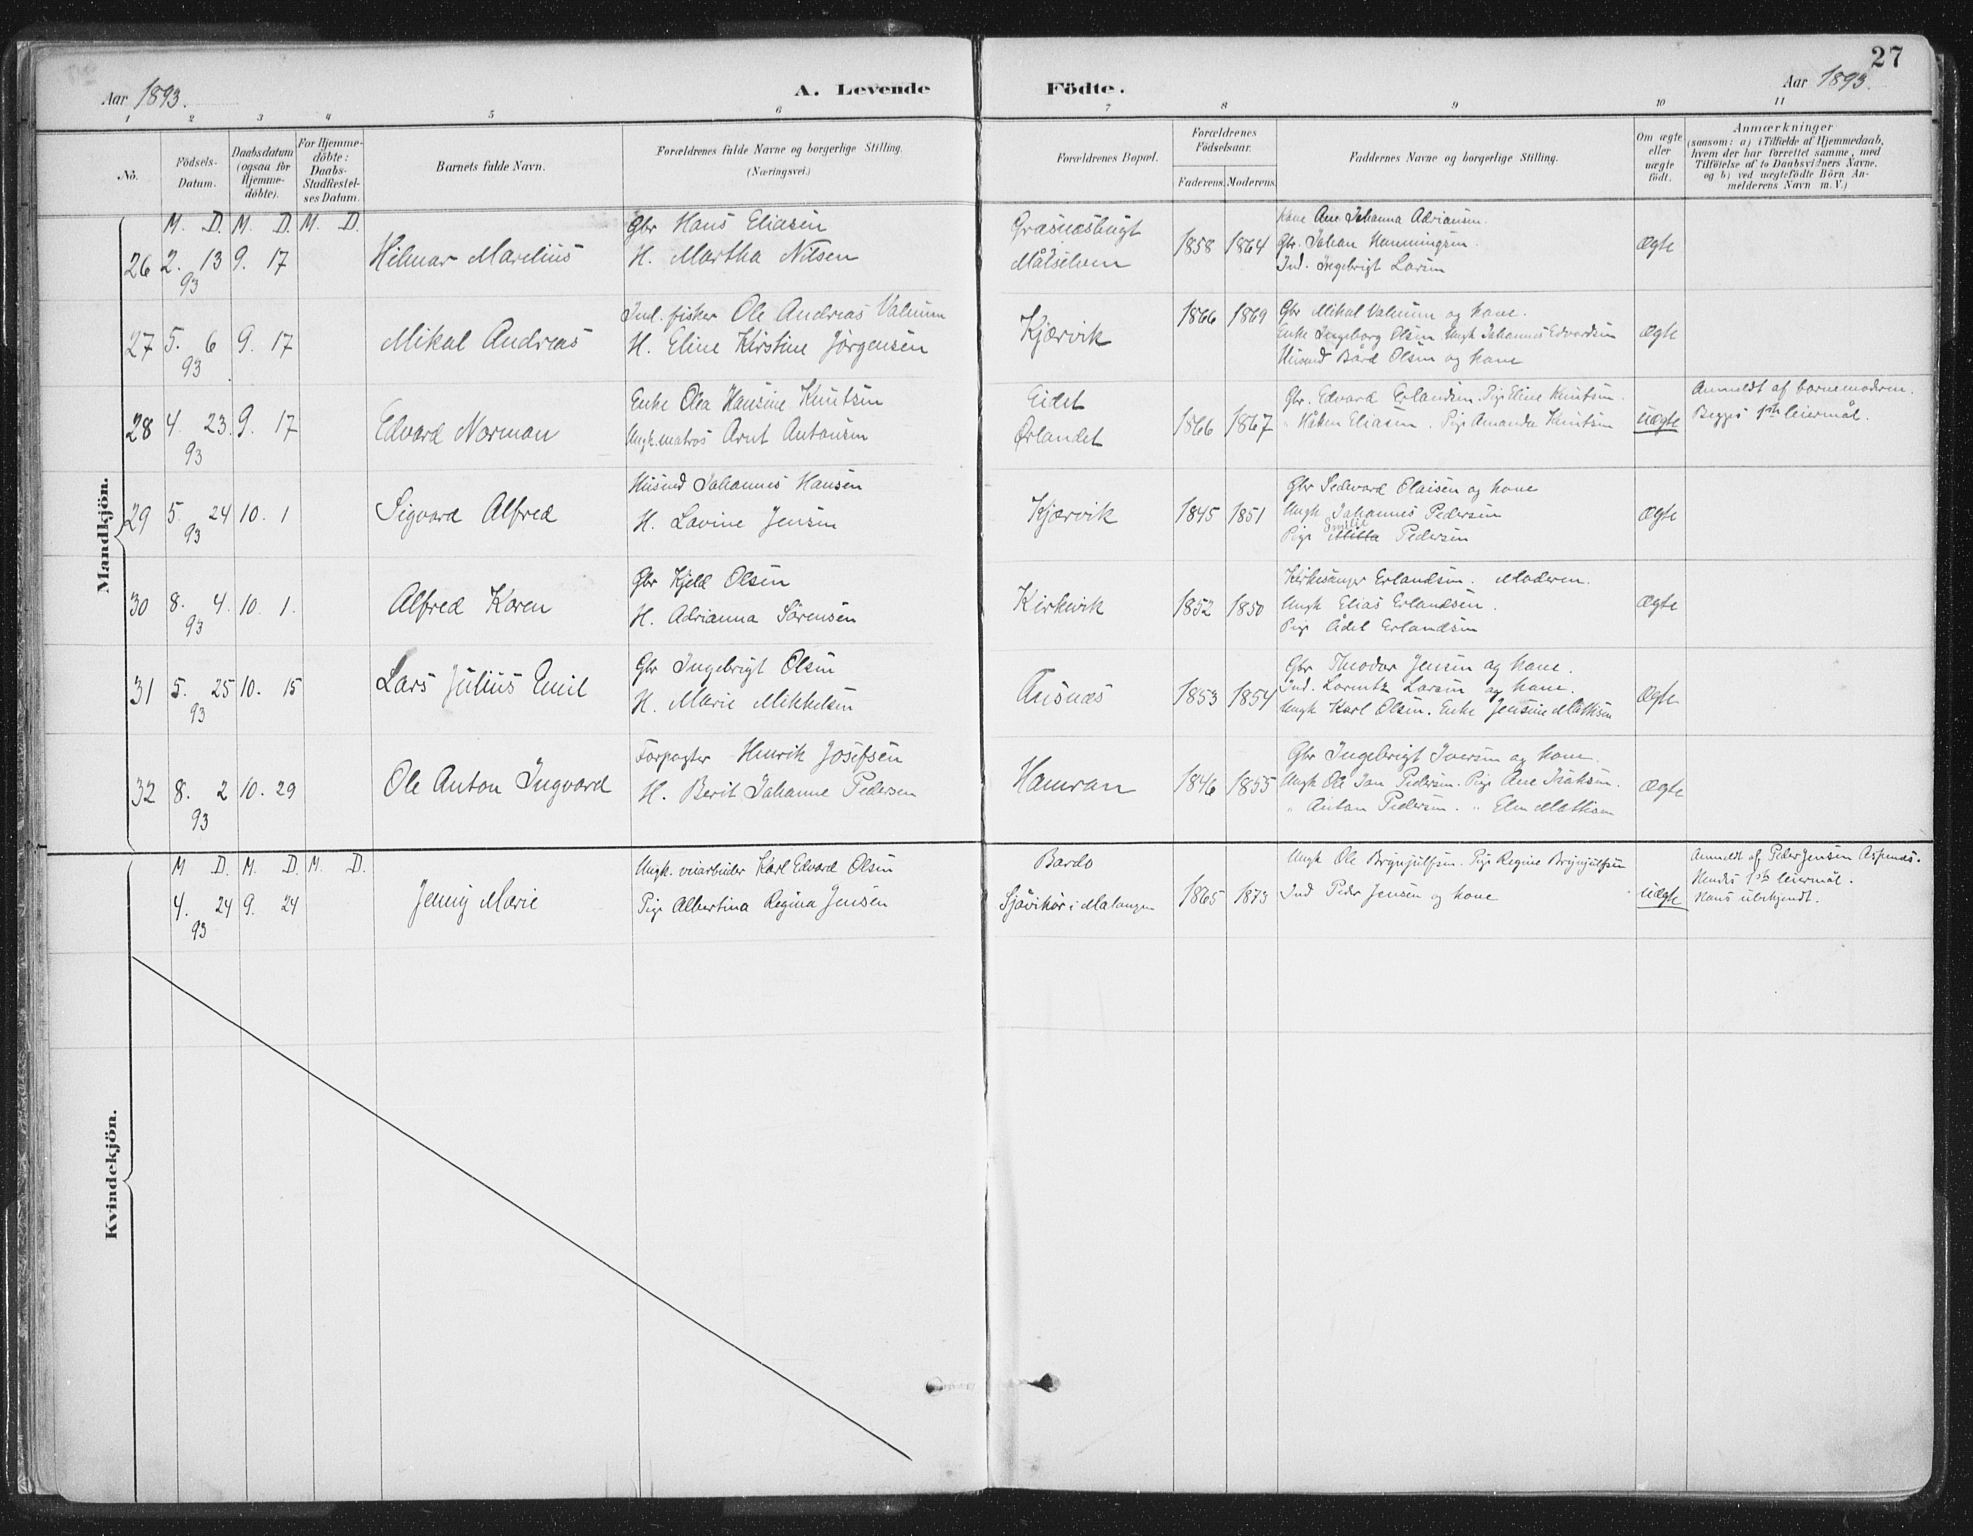 27
Aar 1893.
A. Levende Födte.
Aar 1893.
1 2 3 4 5 6 7 8 9 10 11
Nò.
Födsels-
Datum.
Daabsdatum
(ogsaa för
Hjemme-
döbte).
For Hjemme-
döbte:
Daabs-
Stadfæstel-
ses Datum.
Barnets fulde Navn.
Forældrenes fulde Navne og borgerlige Stilling.
(Næringsvei.)
Forældrenes Bopæl.
Forældrenes
Födselsaar.
Faderens. Moderens.
Faddernes Navne og borgerlige Stilling.
Om ægte
eller
uægte
födt.
Anmærkninger
(saasom: a) i Tilfælde af Hjemmedaab,
hvem der har forrettet samme, med
Tilföielse af to Daabsvidners Navne,
og b) ved uægtefödte Börn An-
melderens Navn m. V.)
Mandkjön.
M. D. M. D. M. D.
26 2. 13 9. 17
93
Hilmar Marelius
Gbr Hans Eliasen
H. Martha Nilsen
Græsnæsbugt
Målselven
1858 1864
Kone Ane Johanna Adriansen.
Gbr. Johan Hemmingsen.
Ind. Ingebrigt Larsen
ægte
27 5. 6 9. 17
93
Mikal Andreas
Ind. fisker Ole Andreas Valnum
H. Eline Kirstine Jørgensen
Kjærvik
1866 1869
Gbr Mikal Valnum og kone.
Enke Ingeborg Olsen Ungk Johannes Edvardsen
Husmd Bård Olsen og kone
ægte
28 4. 23. 9. 17
93
Edvard Norman
Enke Olea Hansine Knutsen
Ungk. matros Arnt Antonsen
Eidet
Ørlandet
1866 1867
Gbr. Edvard Erlandsen. Pige Eline Knutsen.
" Håken Eliasen. Pige Amanda Knutsen
uægte
Anmeldt af barnemoderen.
Begges 1ste leiermål.
29 5. 24 10. 1
93
Sigvard Alfred
Husmd Johannes Hansen
H. Lavine Jensen
Kjærvik
1845 1851
Gbr Sedevard Olaisen og kone
Ungk Johannes Pedersen
Emilie
Pige Pedersen
ægte
30 8. 4. 10. 1.
93
Alfred Koren
Gbr Kjeld Olsen
H. Adrianna Sørensen
Kirkevik
1852 1850
Kirkesanger Erlandsen. Moderen.
Ungk Elias Erlandsen.
Pige Adel Erlandsen
ægte
31 5. 25 10. 15
93
Lars Julius Emil
Gbr Ingebrigt Olsen
H. Marie Mikkelsen
Ansnæs
1853 1854
Gbr Theodor Jensen og kone.
Ind. Lorentz Larsen og kone.
Ungk Karl Olsen. Enke Jensine Mathisen
ægte
32 8. 2 10. 29
93
Ole Anton Ingvard
Forpagter Henrik Josefsen
H. Berit Johanne Pedersen
Hamran
1846 1855
Gbr Ingebrigt Iversen og kone.
Ungk Ole Jan Pedersen. Pige Ane Isaksen.
" Anton Pedersen. " Elen Mathisen
ægte
Kvindekjön.
M D. M. D. M D.
4. 24 9. 24
93
Jenny Marie
Ungk. veiarbeider Karl Edvard Olsen
Pige Albertina Regina Jensen
Bardo
Sjåvikør i Malangen
1865 1873
Ungk Ole Brynjulfsen. Pige Regine Brynjulfsen
Ind Peder Jensen og kone
uægte
Anmeldt af Peder Jensen Aspenæs.
Hendes 1ste leiermål.
Hans ubekjendt.